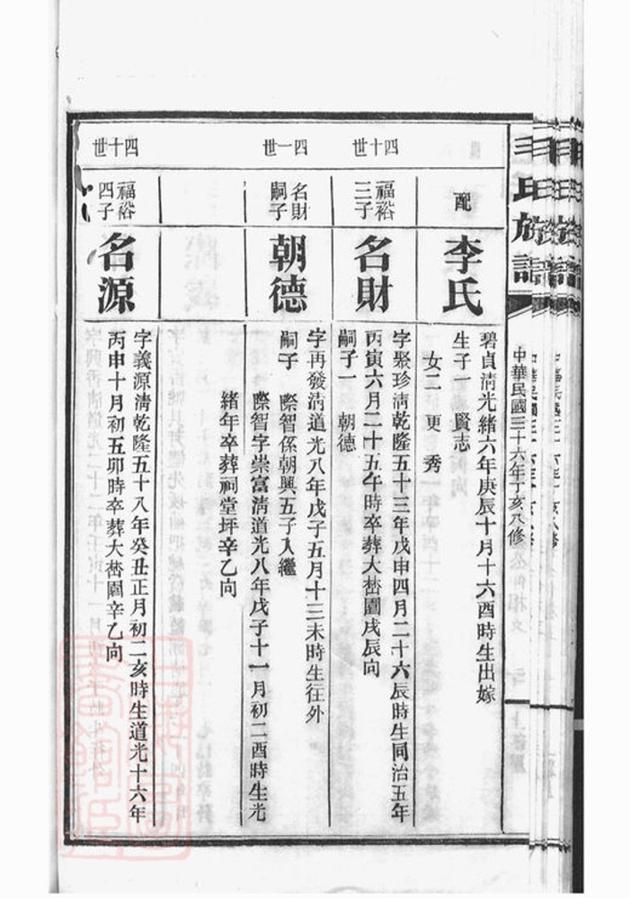 毛氏族譜
中華民國三十六年丁亥八修
配
李氏
碧貞清光緒六年庚辰十月十六酉時生出嫁
生子一 賢志
女二 更 秀
四十世
福裕三子
名財
字聚珍清乾隆五十三年戊申四月二十六辰時生同治五年
丙寅六月二十五午時卒葬大嶅圍戌辰向
嗣子一 朝德
四一世
名財嗣子
朝德
字再發清道光八年戊子五月十三未時生往外
嗣子 際智係朝興五子入繼
際智字崇富清道光八年戊子十一月初二酉時生光
緒年卒葬祠堂坪辛乙向
四十世
福裕四子
名源
字義源清乾隆五十八年癸丑正月初二亥時生道光十六年
丙申十月初五卯時卒葬大嶅圍辛乙向